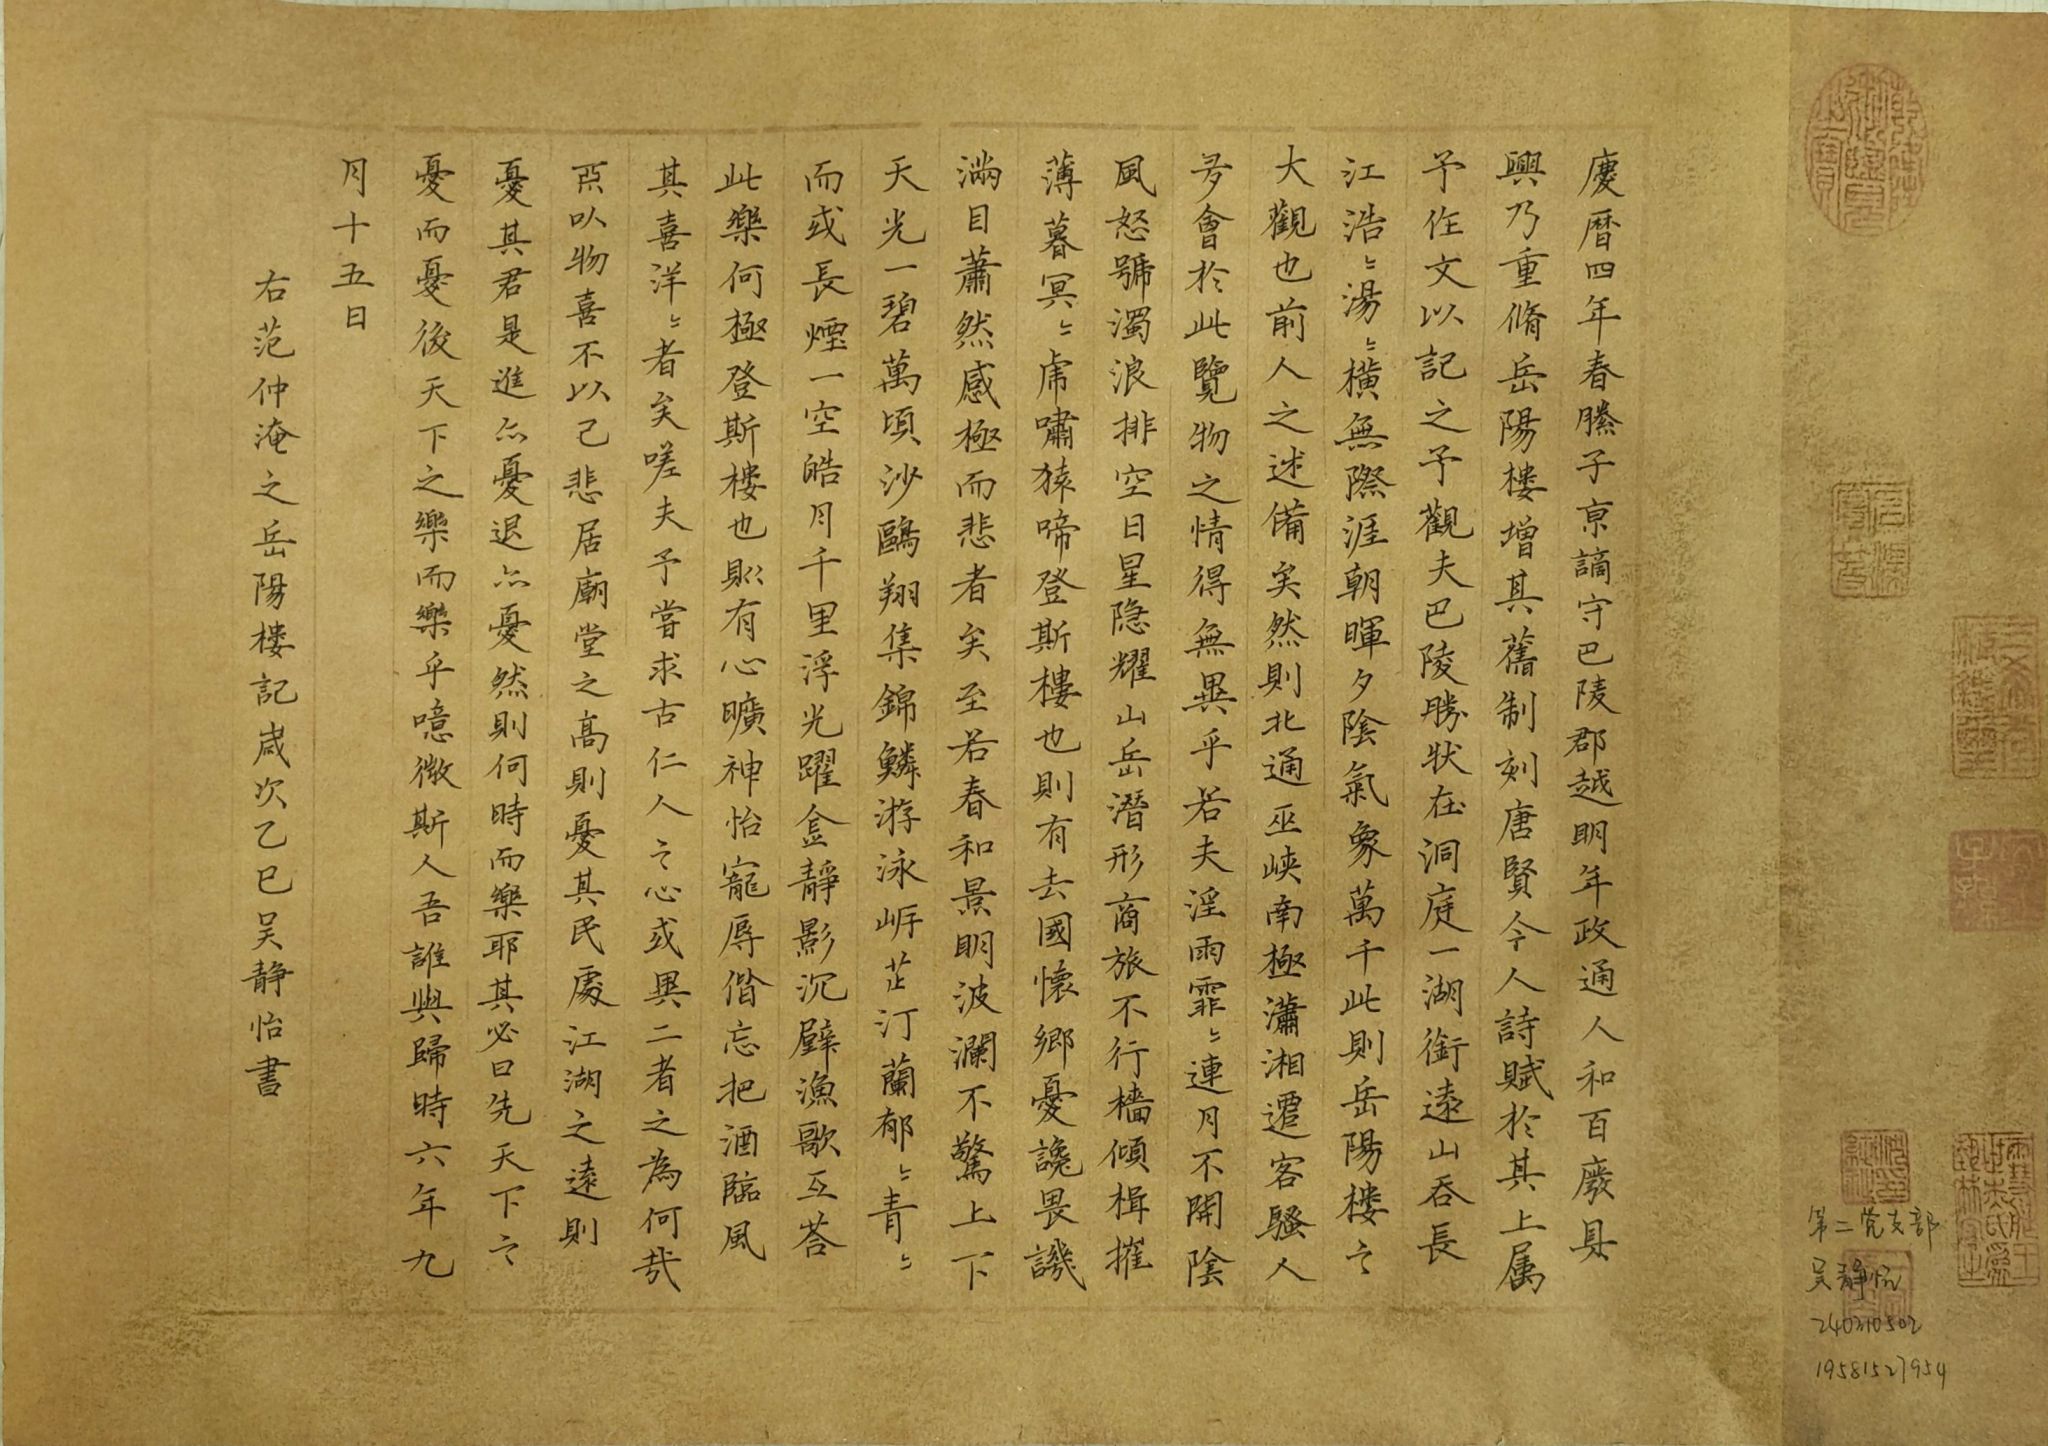 慶曆四年春滕子京謫守巴陵郡越明年政通人和百廢具
興乃重脩岳陽樓增其舊制刻唐賢今人詩賦於其上属
予作文以記之予觀夫巴陵勝狀在洞庭一湖銜遠山吞長
江浩〻湯〻橫無際涯朝暉夕陰氣象萬千此則岳陽樓之
大觀也前人之述備矣然則北通巫峽南極瀟湘遷客騷人
多會於此覽物之情得無異乎若夫淫雨霏〻連月不開陰
風怒號濁浪排空日星隐耀山岳潛形商旅不行檣傾楫摧
薄暮冥〻虎嘯猿啼登斯樓也則有去國懷鄉憂讒畏譏
滿目蕭然感極而悲者矣至若春和景明波瀾不驚上下
天光一碧萬頃沙鷗翔集錦鱗游泳岸芷汀蘭郁〻青〻
而或長煙一空皓月千里浮光躍金靜影沉璧漁歌互荅
此樂何極登斯樓也則有心曠神怡寵辱偕忘把酒臨風
其喜洋〻者矣嗟夫予嘗求古仁人之心或異二者之為何哉
不以物喜不以己悲居廟堂之高則憂其民處江湖之遠則
憂其君是進亦憂退亦憂然則何時而樂耶其必曰先天下之
憂而憂後天下之樂而樂乎噫微斯人吾誰與歸時六年九
月十五日
右范仲淹之岳陽樓記歲次乙巳吴靜怡書
第二党支部
吴静怡
240310502
19581527954